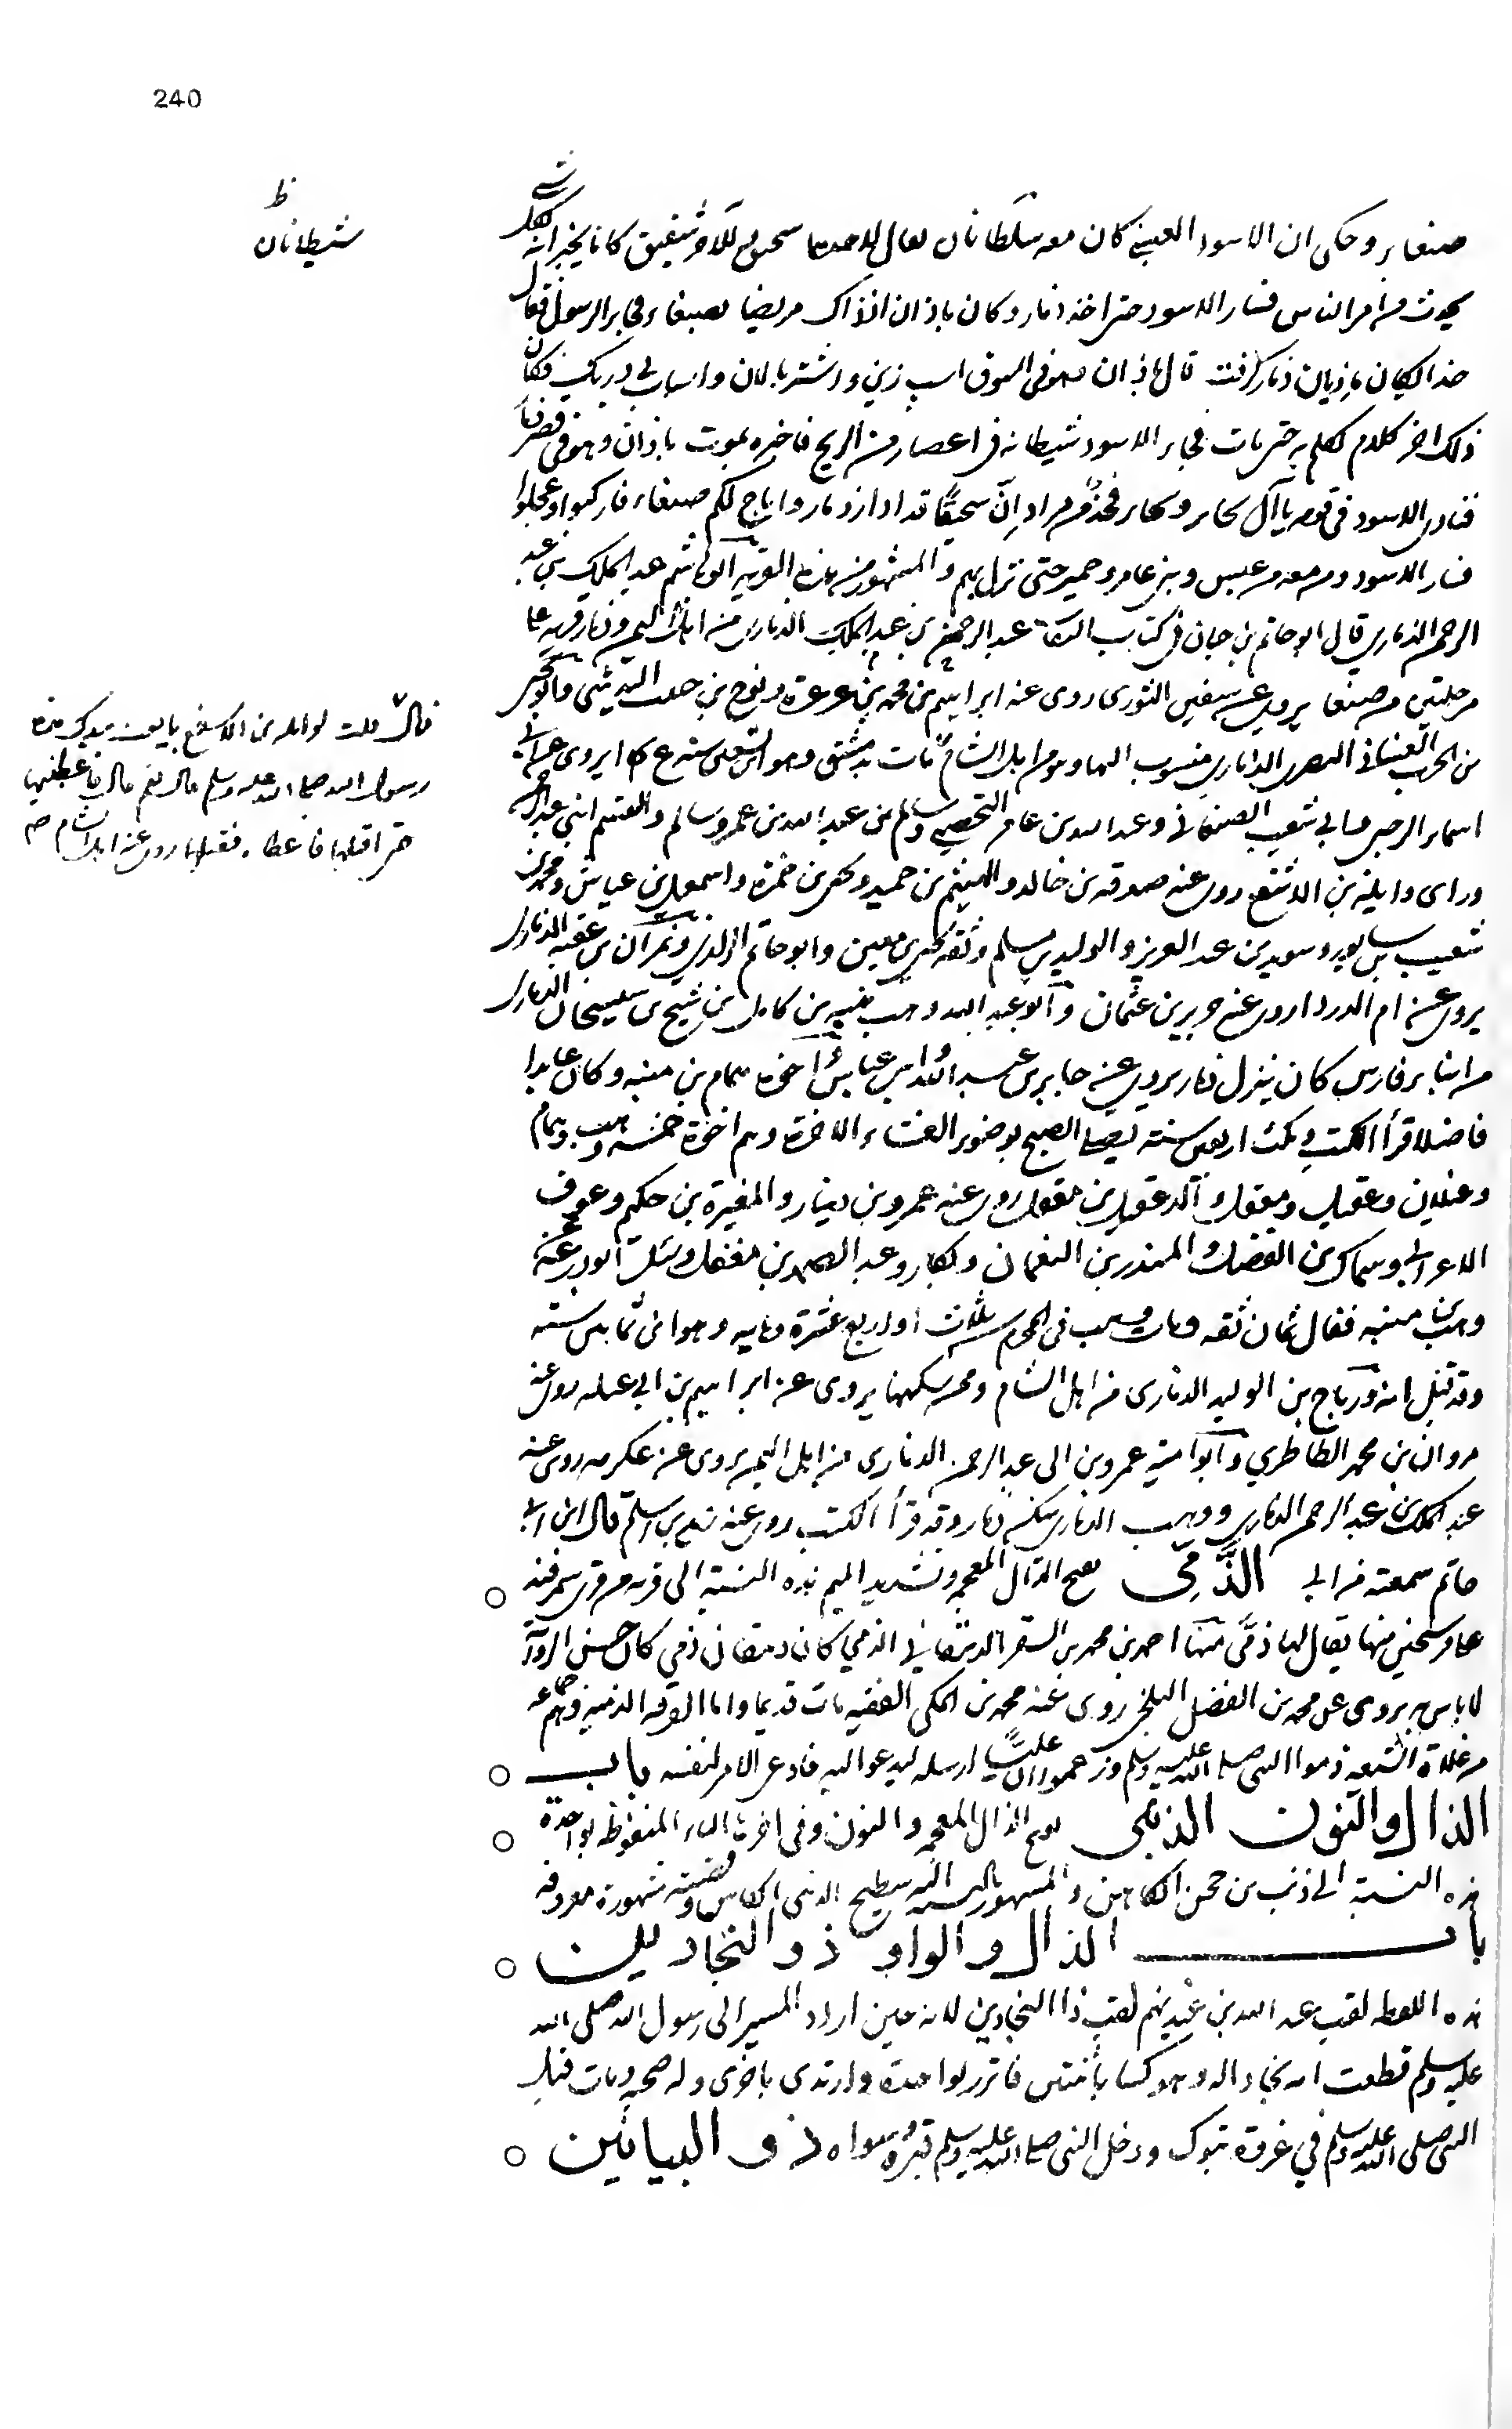 240
صنعاء وحكى ان الاسود العنسي كان معه سلطانان يقال لاحدهما سحيق وللآخر شقيق كانا يخبرانه بكل شي
ظ
شيطانان
يحدث من امر الناس فسار الاسود حتى اخذ ذمار وكان باذان اذ ذاك مريضا بصنعاء فجاءه الرسول فقال
ذمار كرفت قال باذان وهو في السوق اسب زين واشتر بالان واسباب بي درنك فكان
ذلك اخر كلام تكلم به حتى مات فجاء الاسود شيطانه في اعصار من الريح فاخبره بموت باذان وهو في قصره
فنادى الاسود في قومه يا آل يحابر ويحابر فخذ من مراد ان سحيقا قد اداز ذمار واباح لكم صنعاء فاركبوا وعجلوا
فسار الاسود ومن معه من عبس وبني عامر وحمير حتى نزل بهم والمشهور من هذه القرية ابو هاشم عبد الملك بن عبد
الرحمن الذماري قال ابو حاتم بن حبان في كتاب الثقات عبد الرحمن بن عبد الملك الذماري من اهل اليمن وذمار قرية على
مرحلتين من صنعا يروي عن سفين الثوري روى عنه ابراهيم بن محمد بن عرعرة ونوح بن حبيب
بن الحرث الغساني الذماري منسوب اليها وهو من اهل الشام مات بدمشق وهو ابن تسعين سنة يروى عن ابي
قال قلت لواثلة بن الاسقع بايعت بيدك هذه
رسول الله صلى الله عليه وسلم قال نعم قال فاعطنيها
حتى اقبلها فاعطا فقبلها روى عنه اهل الشام صح
اسماء الرحبي وابي شعيب الصنعاني وعبد الله بن عامر اليحصبي وسالم بن عبد الله بن عمر وسالم والقسم ابني
وراى واثلة بن الاسقع روى عنه صدقة بن خالد والهيثم بن حميد ويحيى بن حمزة واسمعيل بن عياش ومحمد بن
شعيب بن سابور وسويد بن عبد العزيز والوليد بن مسلم وثقه يحيى بن معين وابو حاتم الرازي ونمران بن عتبة الذماري
يروى عن ام الدرداء روى عنه حريز بن عثمان وابو عبد الله وهب بن منبه بن كامل بن شيخ بن سيسحان الذماري
من ابناء فارس كان ينزل ذمار يروي عن جابر بن عبد الله وابن عباس اخوه همام بن منبه وكان عابدا
فاضلا قرا الكتب ومكث اربعين سنة يصلي الصبح بوضوء العشاء الاخرة وهم اخوة خمسة وهب وهمام
وغيلان وعقيل ومعقل والد عقيل بن معقل روى عنه عمرو بن دينار والمغيرة بن حكيم وعوف
الاعرابي وسماك بن الفضل والمنذر بن النعمان وبكار وعبد الصمد بن معقل وسئل ابو زرعة عن
وهب بن منبه فقال يمان ثقة ومات وهب في المحرم سنة ثلاث او اربع عشرة وماية وهو ابن ثمانين سنة
وقد قيل ورباح بن الوليد الذماري من اهل الشام وممن سكنها يروى عن ابراهيم بن ابي عبلة روى عنه
مروان بن محمد الطاطري وابو امية عمرو بن ابي عبد الرحمن الذماري من اهل اليمن يروى عن عكرمة روى عنه
عبد الملك بن عبد الرحمن الذماري ووهب الذماري سكن ذمار وقد قرا الكتب روى عنه زيد بن اسلم قال ابن ابي
حاتم سمعته من ابي الذَّمّي بفتح الذال المعجمة وتشديد الميم هذه النسبة الى قرية من قرى سمرقند
على فرسخين منها يقال لها ذمى منها احمد بن محمد بن السقر الدهقان الذمي كان دهقان ذمي كان حسن الرواية
لا باس به يروى عن محمد بن الفضل البلخي روى عنه محمد بن المكي الفقيه مات قديما واما الفرقة الذمية فهم جماعة
من غلاة الشيعة ذموا النبي صلى الله عليه وسلم وزعموا ان عليا ارسله ليدعو اليه فادعى الامر لنفسه باب
الذال والنون الذنبي بفتح الذال المعجمة والنون وفي اخرها الباء المنقوطة بواحدة
هذه النسبة الى ذنب بن حجن الكاهن والمشهور بالنسبة اليه سطيح الذنبي الكاهن وقصته مشهورة معروفة
باب الذال والواو ذو البجادين
هذه اللفظة لقب عبد الله بن عبد نهم لقب ذا البجادين لانه حين اراد المسير الى رسول الله صلى الله
عليه وسلم قطعت امه بجادا له وهو كساء باثنين فاتزر بواحدة وارتدى باخرى وله صحبة ومات قبل
النبي صلى الله عليه وسلم في غزوة تبوك ودخل النبي صلى الله عليه وسلم قبره وسواه ذو البيانين